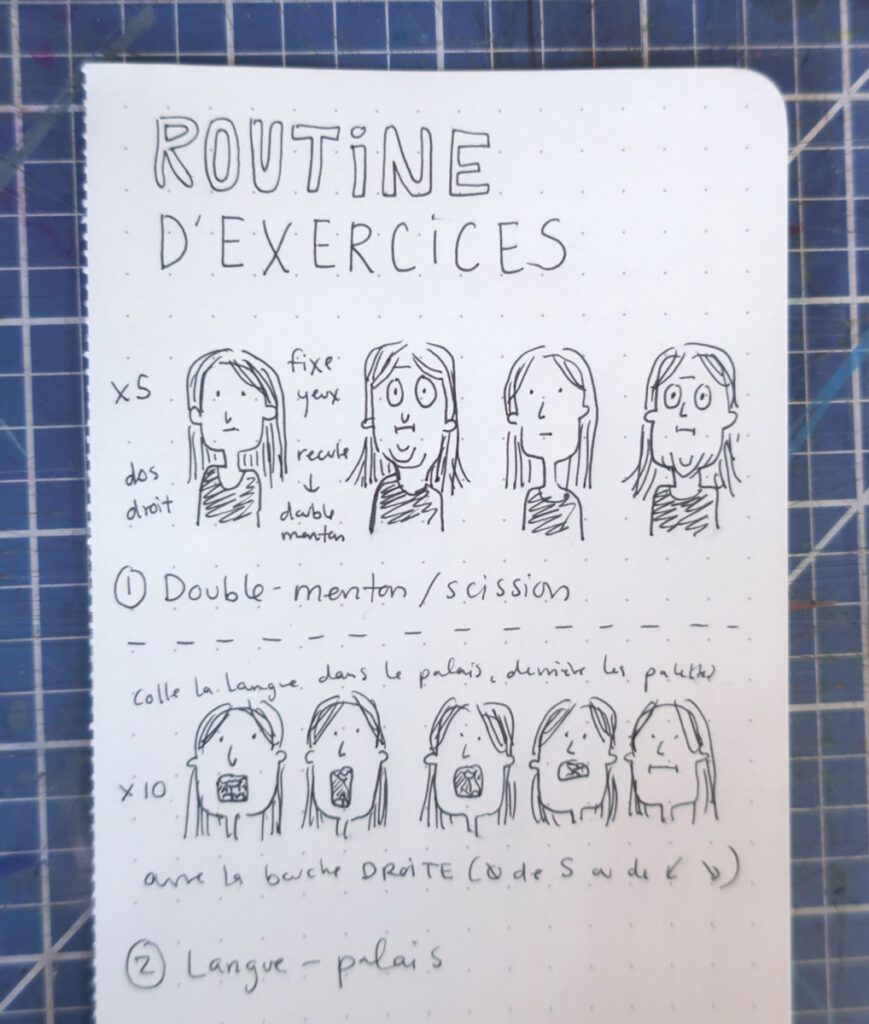 ROUTINE
D'EXERCICES
x5
fixe
yeux
recule
↓
double
menton
dos
droit
① Double-menton/scission
Colle la langue dans le palais, derrière les palettes
x10
ouvre la bouche DROITE (de S ou de ↙ ↘)
② Langue - palais